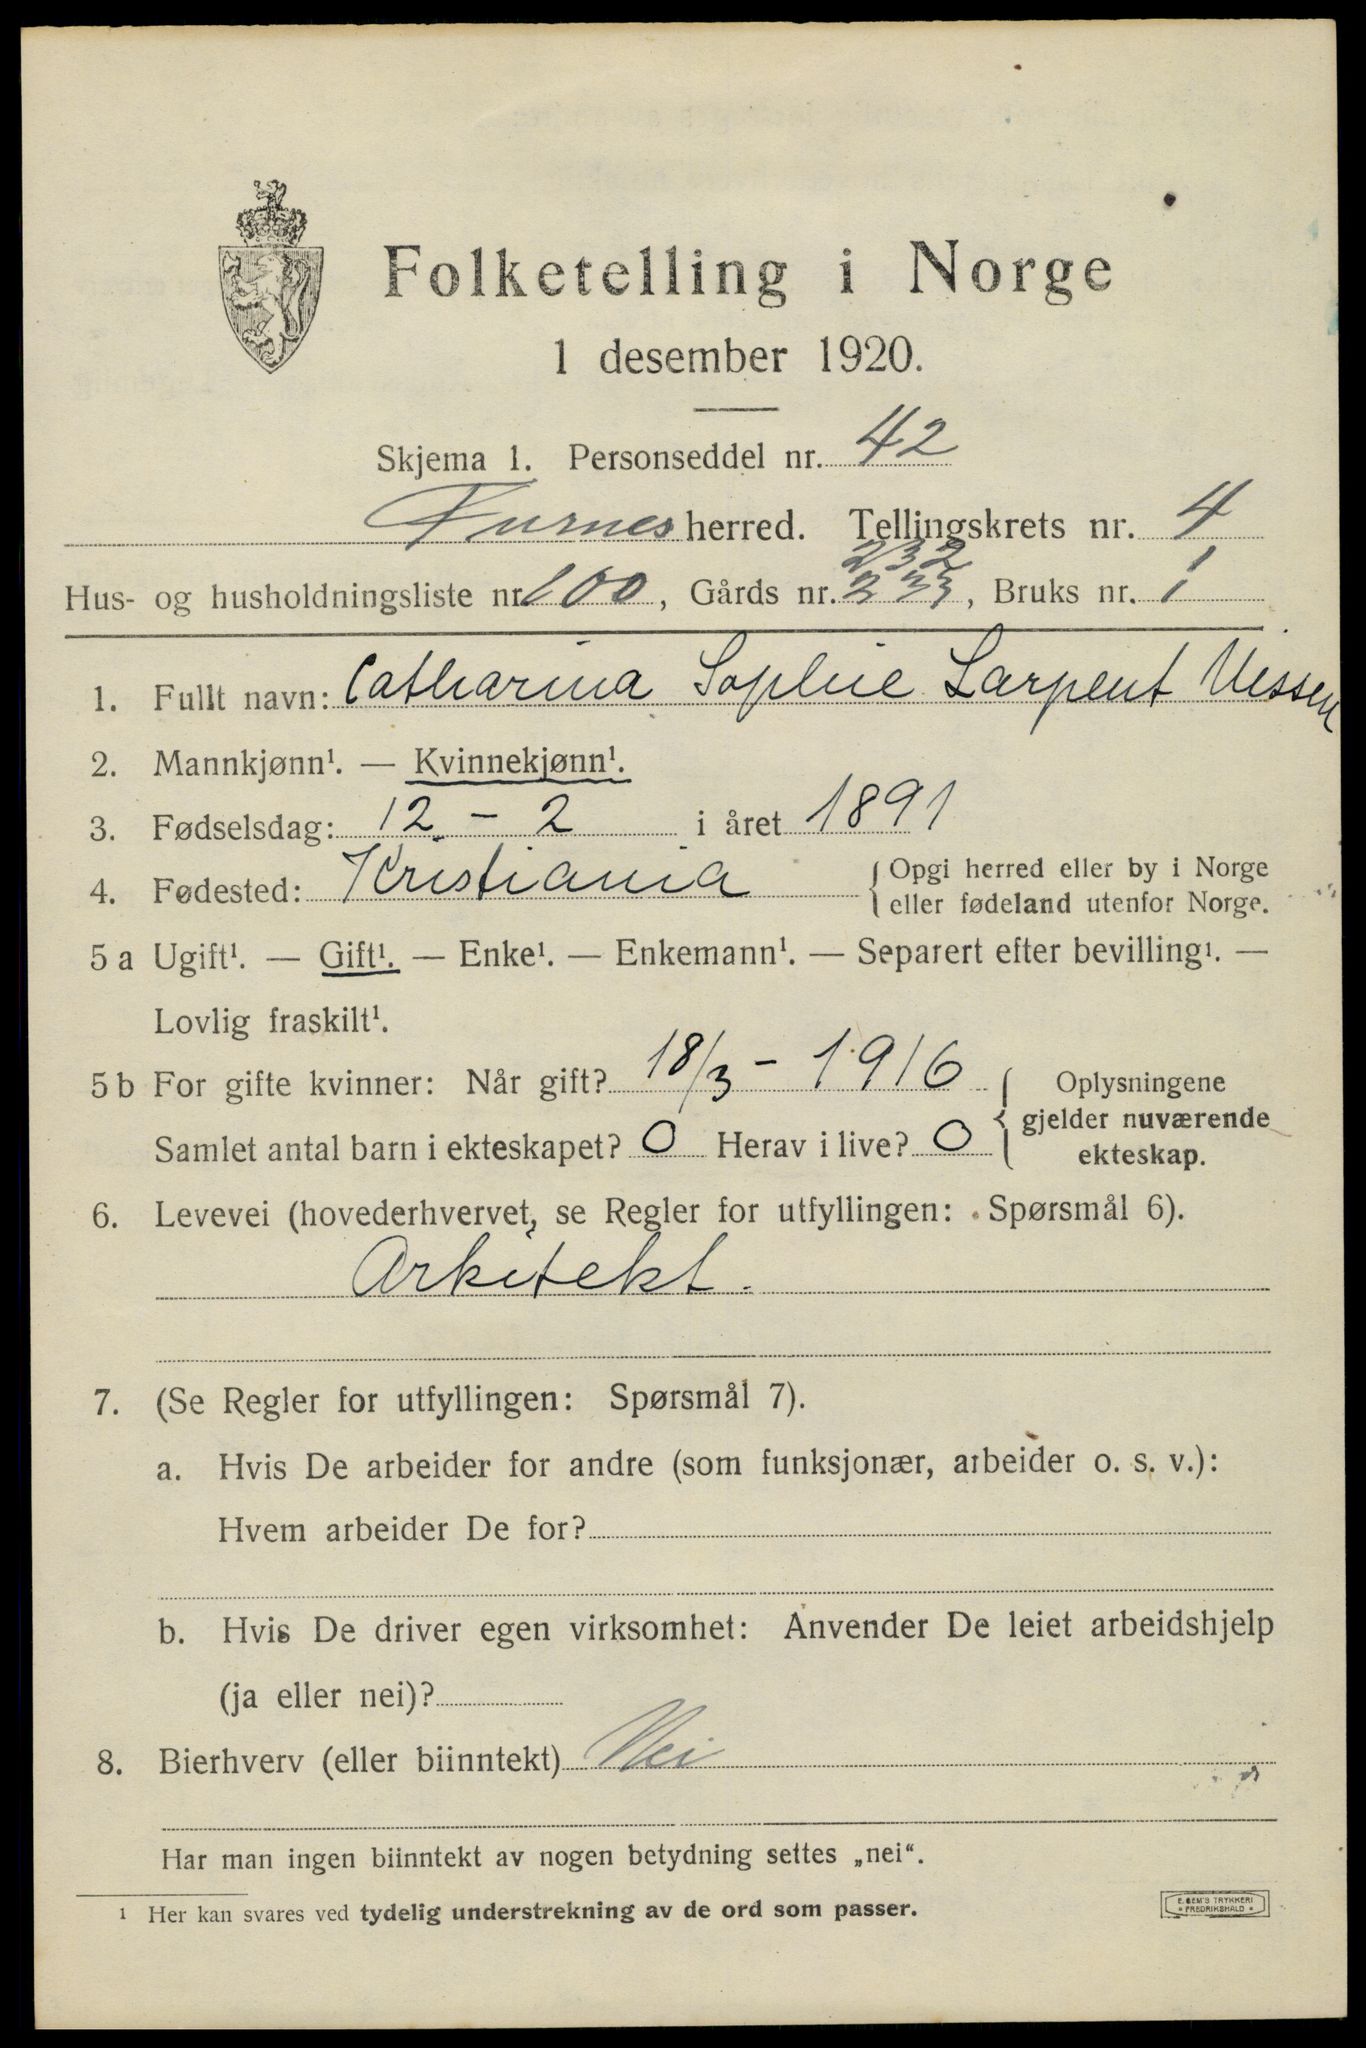 Folketelling i Norge
1 desember 1920.
Skjema 1. Personseddel nr. 42
Furnes herred. Tellingskrets nr. 4
232
Hus- og husholdningsliste nr. 100, Gårds nr. 233, Bruks nr. 1
1. Fullt navn: Catharina Sophie Larpent Nissen
2. Mannkjønn¹. — Kvinnekjønn¹.
3. Fødselsdag: 12 - 2 i året 1891
4. Fødested: Kristiania { Opgi herred eller by i Norge
eller fødeland utenfor Norge.
5 a Ugift¹. — Gift¹. — Enke¹. — Enkemann¹. — Separert efter bevilling¹. —
Lovlig fraskilt¹.
5 b For gifte kvinner: Når gift? 18/3 - 1916 { Oplysningene
gjelder nuværende
Samlet antal barn i ekteskapet? 0 Herav i live? 0 ekteskap.
6. Levevei (hovederhvervet, se Regler for utfyllingen: Spørsmål 6).
Arkitekt.
7. (Se Regler for utfyllingen: Spørsmål 7).
a. Hvis De arbeider for andre (som funksjonær, arbeider o. s. v.):
Hvem arbeider De for?
b. Hvis De driver egen virksomhet: Anvender De leiet arbeidshjelp
(ja eller nei)?
8. Bierhverv (eller biinntekt) Nei
Har man ingen biinntekt av nogen betydning settes „nei“.
¹ Her kan svares ved tydelig understrekning av de ord som passer.
E. SEM'S TRYKKERI
* FREDRIKSHALD *